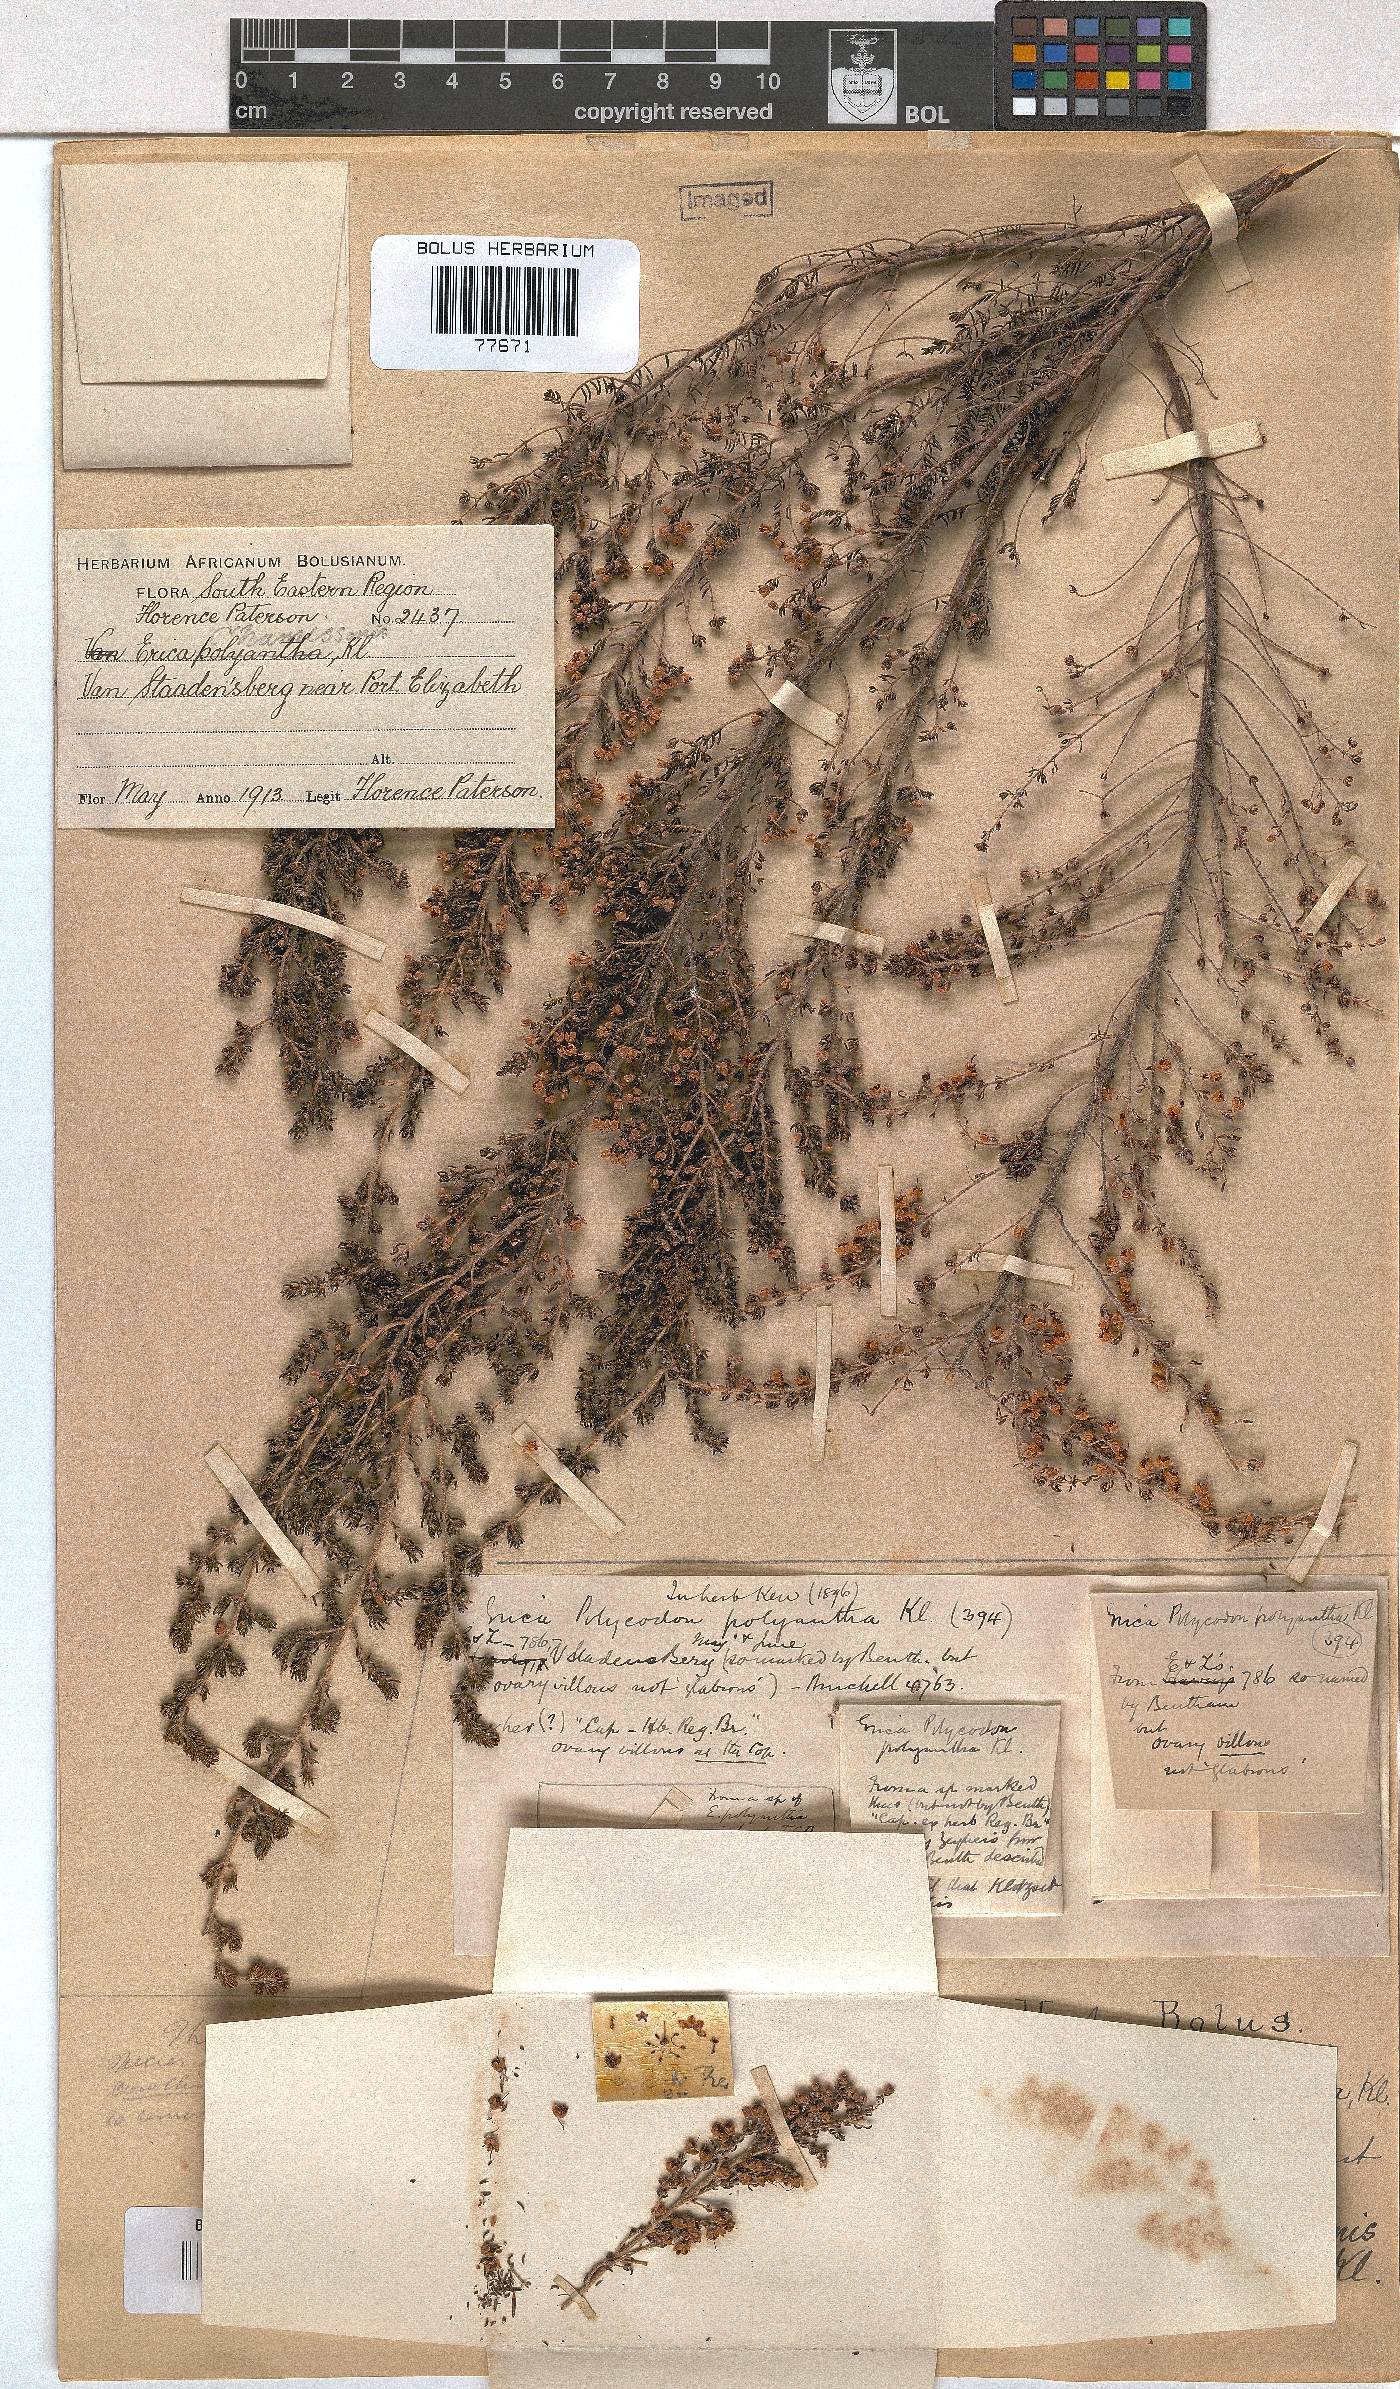 0 1 2 3 4 5 6 7 8 9 10
cm copyright reserved BOL
Imaged
BOLUS HERBARIUM
77671
HERBARIUM AFRICANUM BOLUSIANUM.
FLORA South Eastern Region
Florence Paterson. No. 2437
Van Erica polyantha, Kl
Van Staaden'sberg near Port Elizabeth
Alt.
Flor May Anno 1913 Legit Florence Paterson.
In herb Kew (1896)
Erica Polycodon polyantha Kl (394)
& Z - 786,7 May & June
V Stadens Berg (so marked by Benth. but
ovary villous not 'glabrous') - Burchell 4763.
(?) "Cap - Hb. Reg. Br."
ovary villous at the top.
Erica Polycodon polyantha Kl
(394)
E & Z's.
From 786 so named
by Bentham
but
ovary villous
not 'glabrous'
Erica Polycodon
polyantha Kl.
From a sp marked
thus (but not by Benth)
"Cap. ex herb Reg. Br"
Zeyheris from
Benth describ
that Klotzsch
From a sp of
E. polyantha
Bolus.
Kl.
Kl.